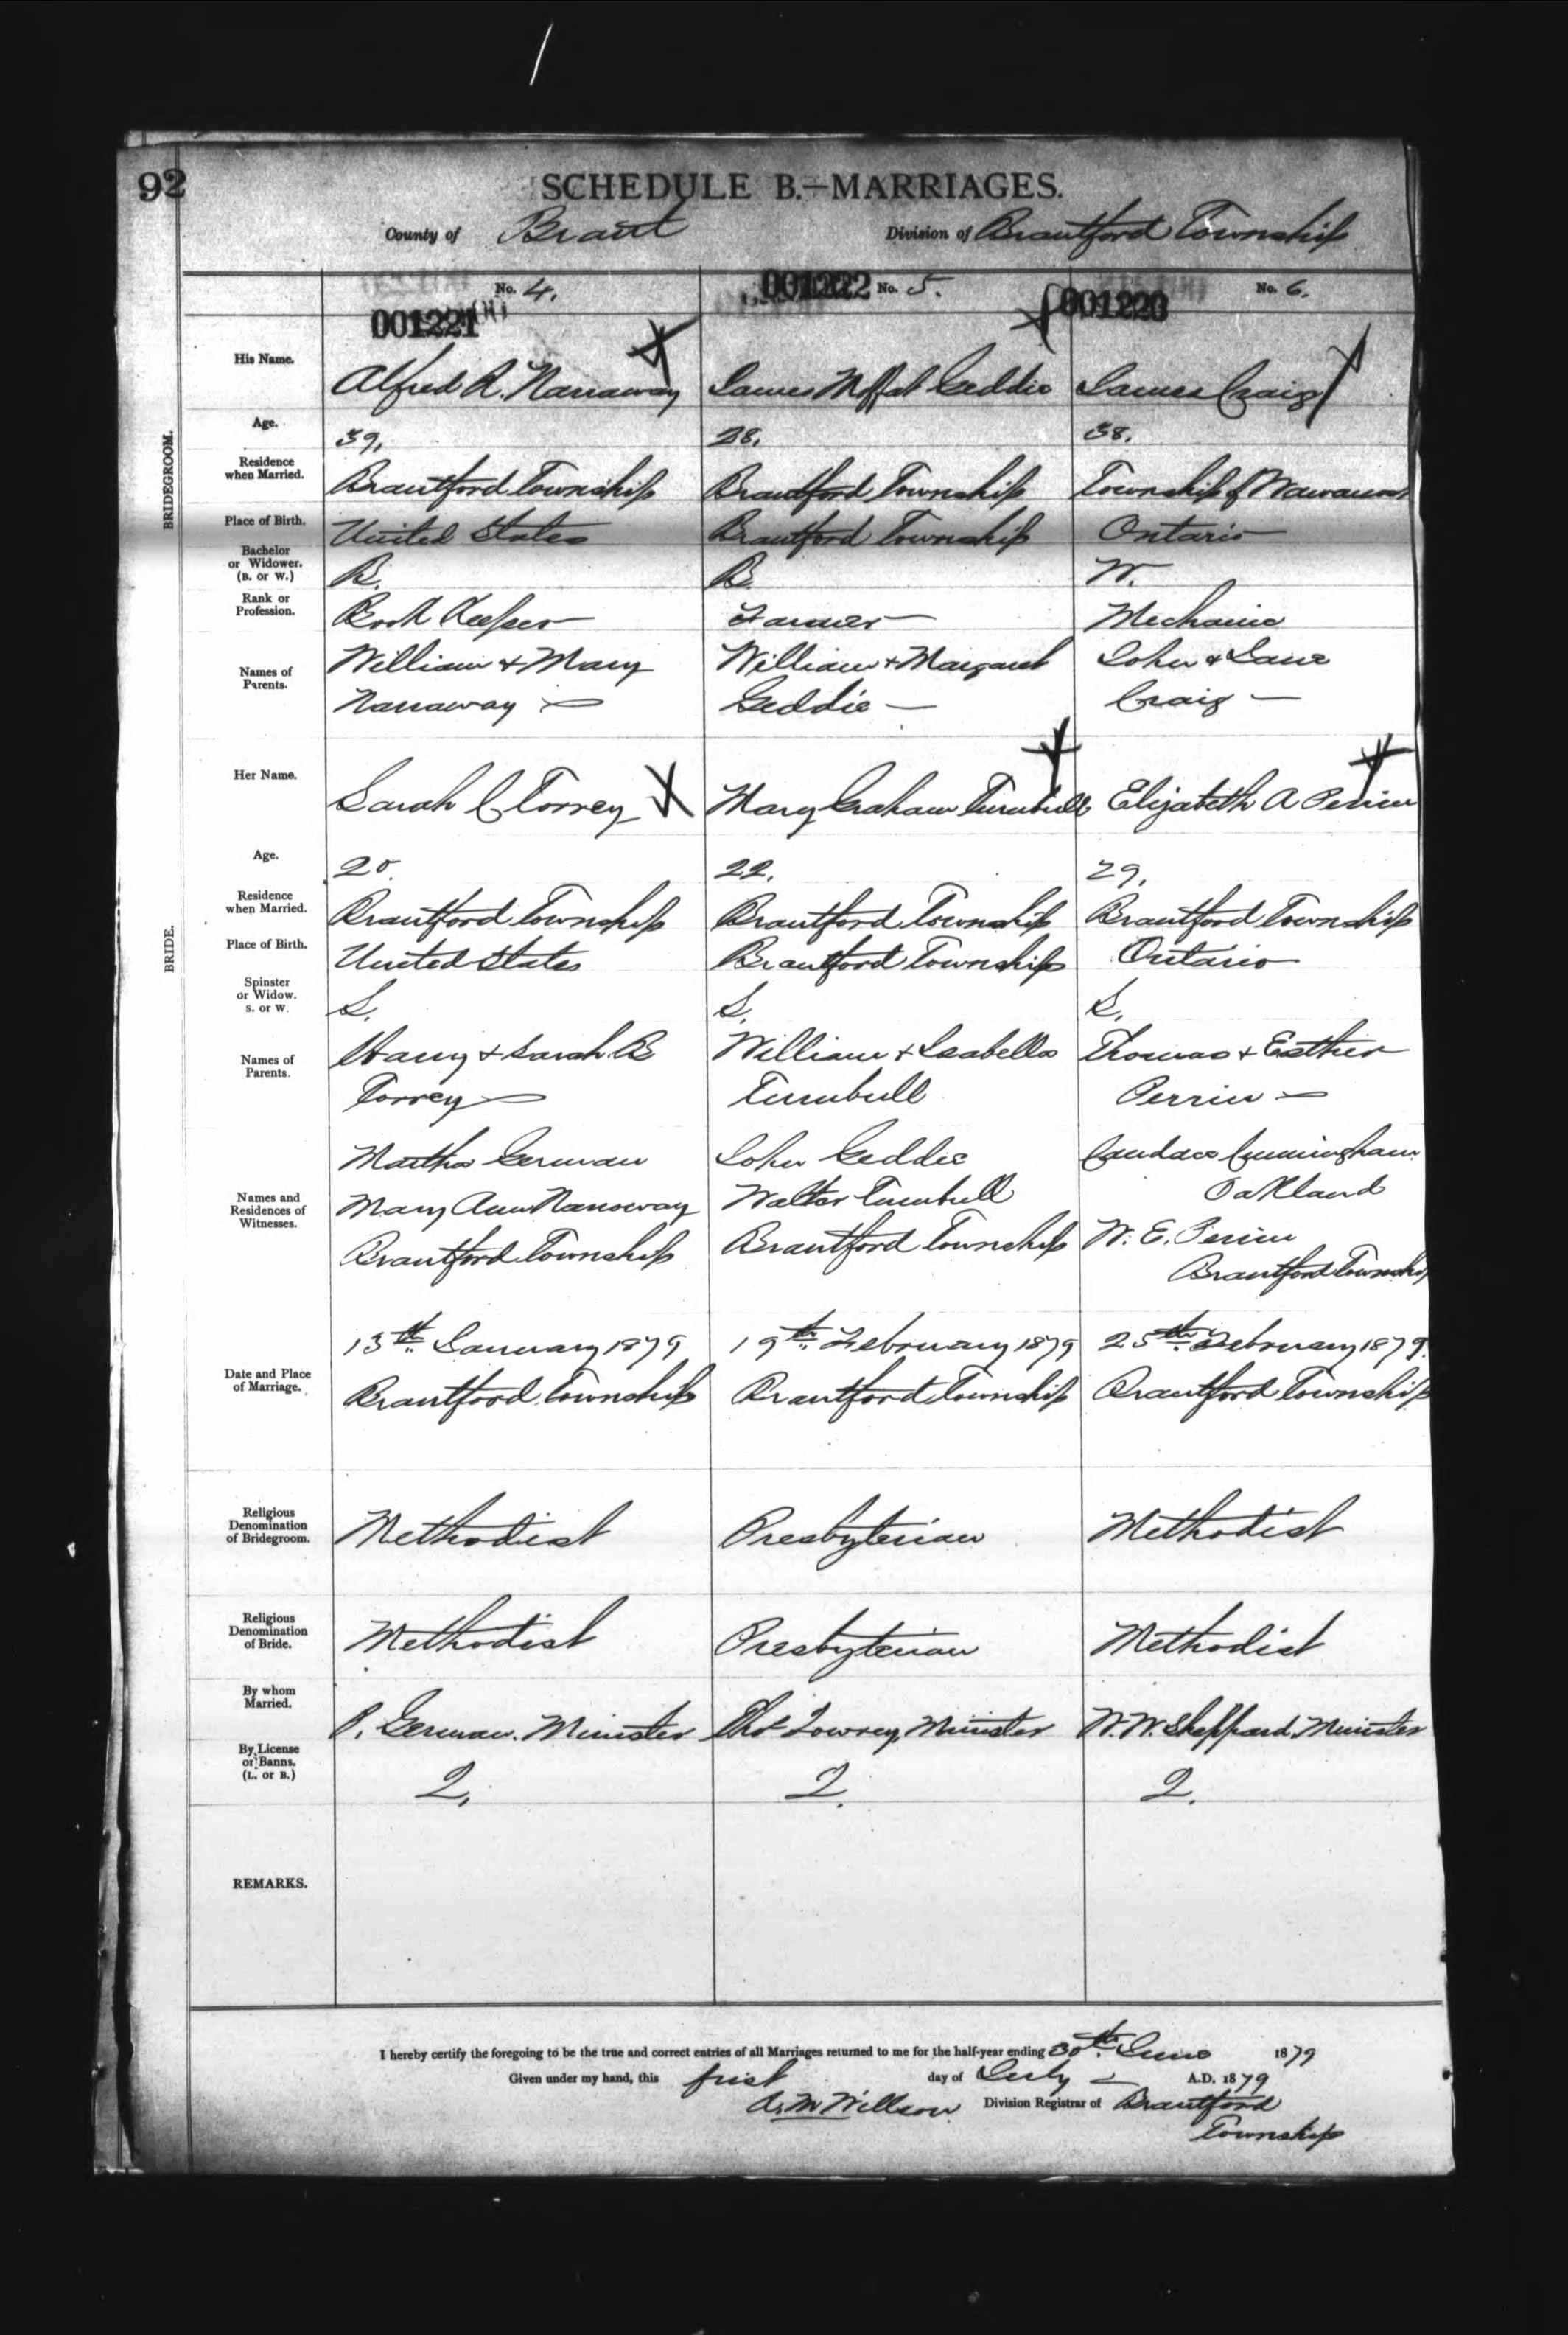 92
SCHEDULE B.—MARRIAGES.
County of Brant Division of Brantford Township
No. 4. 001222 No. 5. 001223 No. 6.
001221
BRIDEGROOM.
His Name. Alfred R. Narraway James Moffat Geddie James Craig
Age. 39. 28. 38.
Residence when Married. Brantford Township Brantford Township Township of Wawanosh
Place of Birth. United States Brantford Township Ontario
Bachelor or Widower. (B. or W.) B. B. W.
Rank or Profession. Book Keeper Farmer Mechanic
Names of Parents. William & Mary William & Margaret John & Jane
Narraway Geddie Craig
BRIDE.
Her Name. Sarah C Torrey Mary Graham Turnbull Elizabeth A Perrin
Age. 22. 29.
Residence when Married. Brantford Township Brantford Township Brantford Township
Place of Birth. United States Brantford Township Ontario
Spinster or Widow. S. or W. S. S. S.
Names of Parents. Harry & Sarah B William & Isabella Thomas & Esther
Torrey Turnbull Perrin
Names and Residences of Witnesses. Martha German John Geddie Candace Cunningham
Mary Ann Narraway Walter Turnbull Oakland
Brantford Township Brantford Township W. E. Perrin
Brantford Township
Date and Place of Marriage. 13th January 1879 19th February 1879 25th February 1879.
Brantford Township Brantford Township Brantford Township
Religious Denomination of Bridegroom. Methodist Presbyterian Methodist
Religious Denomination of Bride. Methodist Presbyterian Methodist
By whom Married. P. German. Minister Thos Lowrey, Minister W. W. Sheppard, Minister
By License or Banns. (L. or B.) L. L. L.
REMARKS.
I hereby certify the foregoing to be the true and correct entries of all Marriages returned to me for the half-year ending 30th June 1879
Given under my hand, this first day of July A.D. 1879
A. M Willson Division Registrar of Brantford
Township